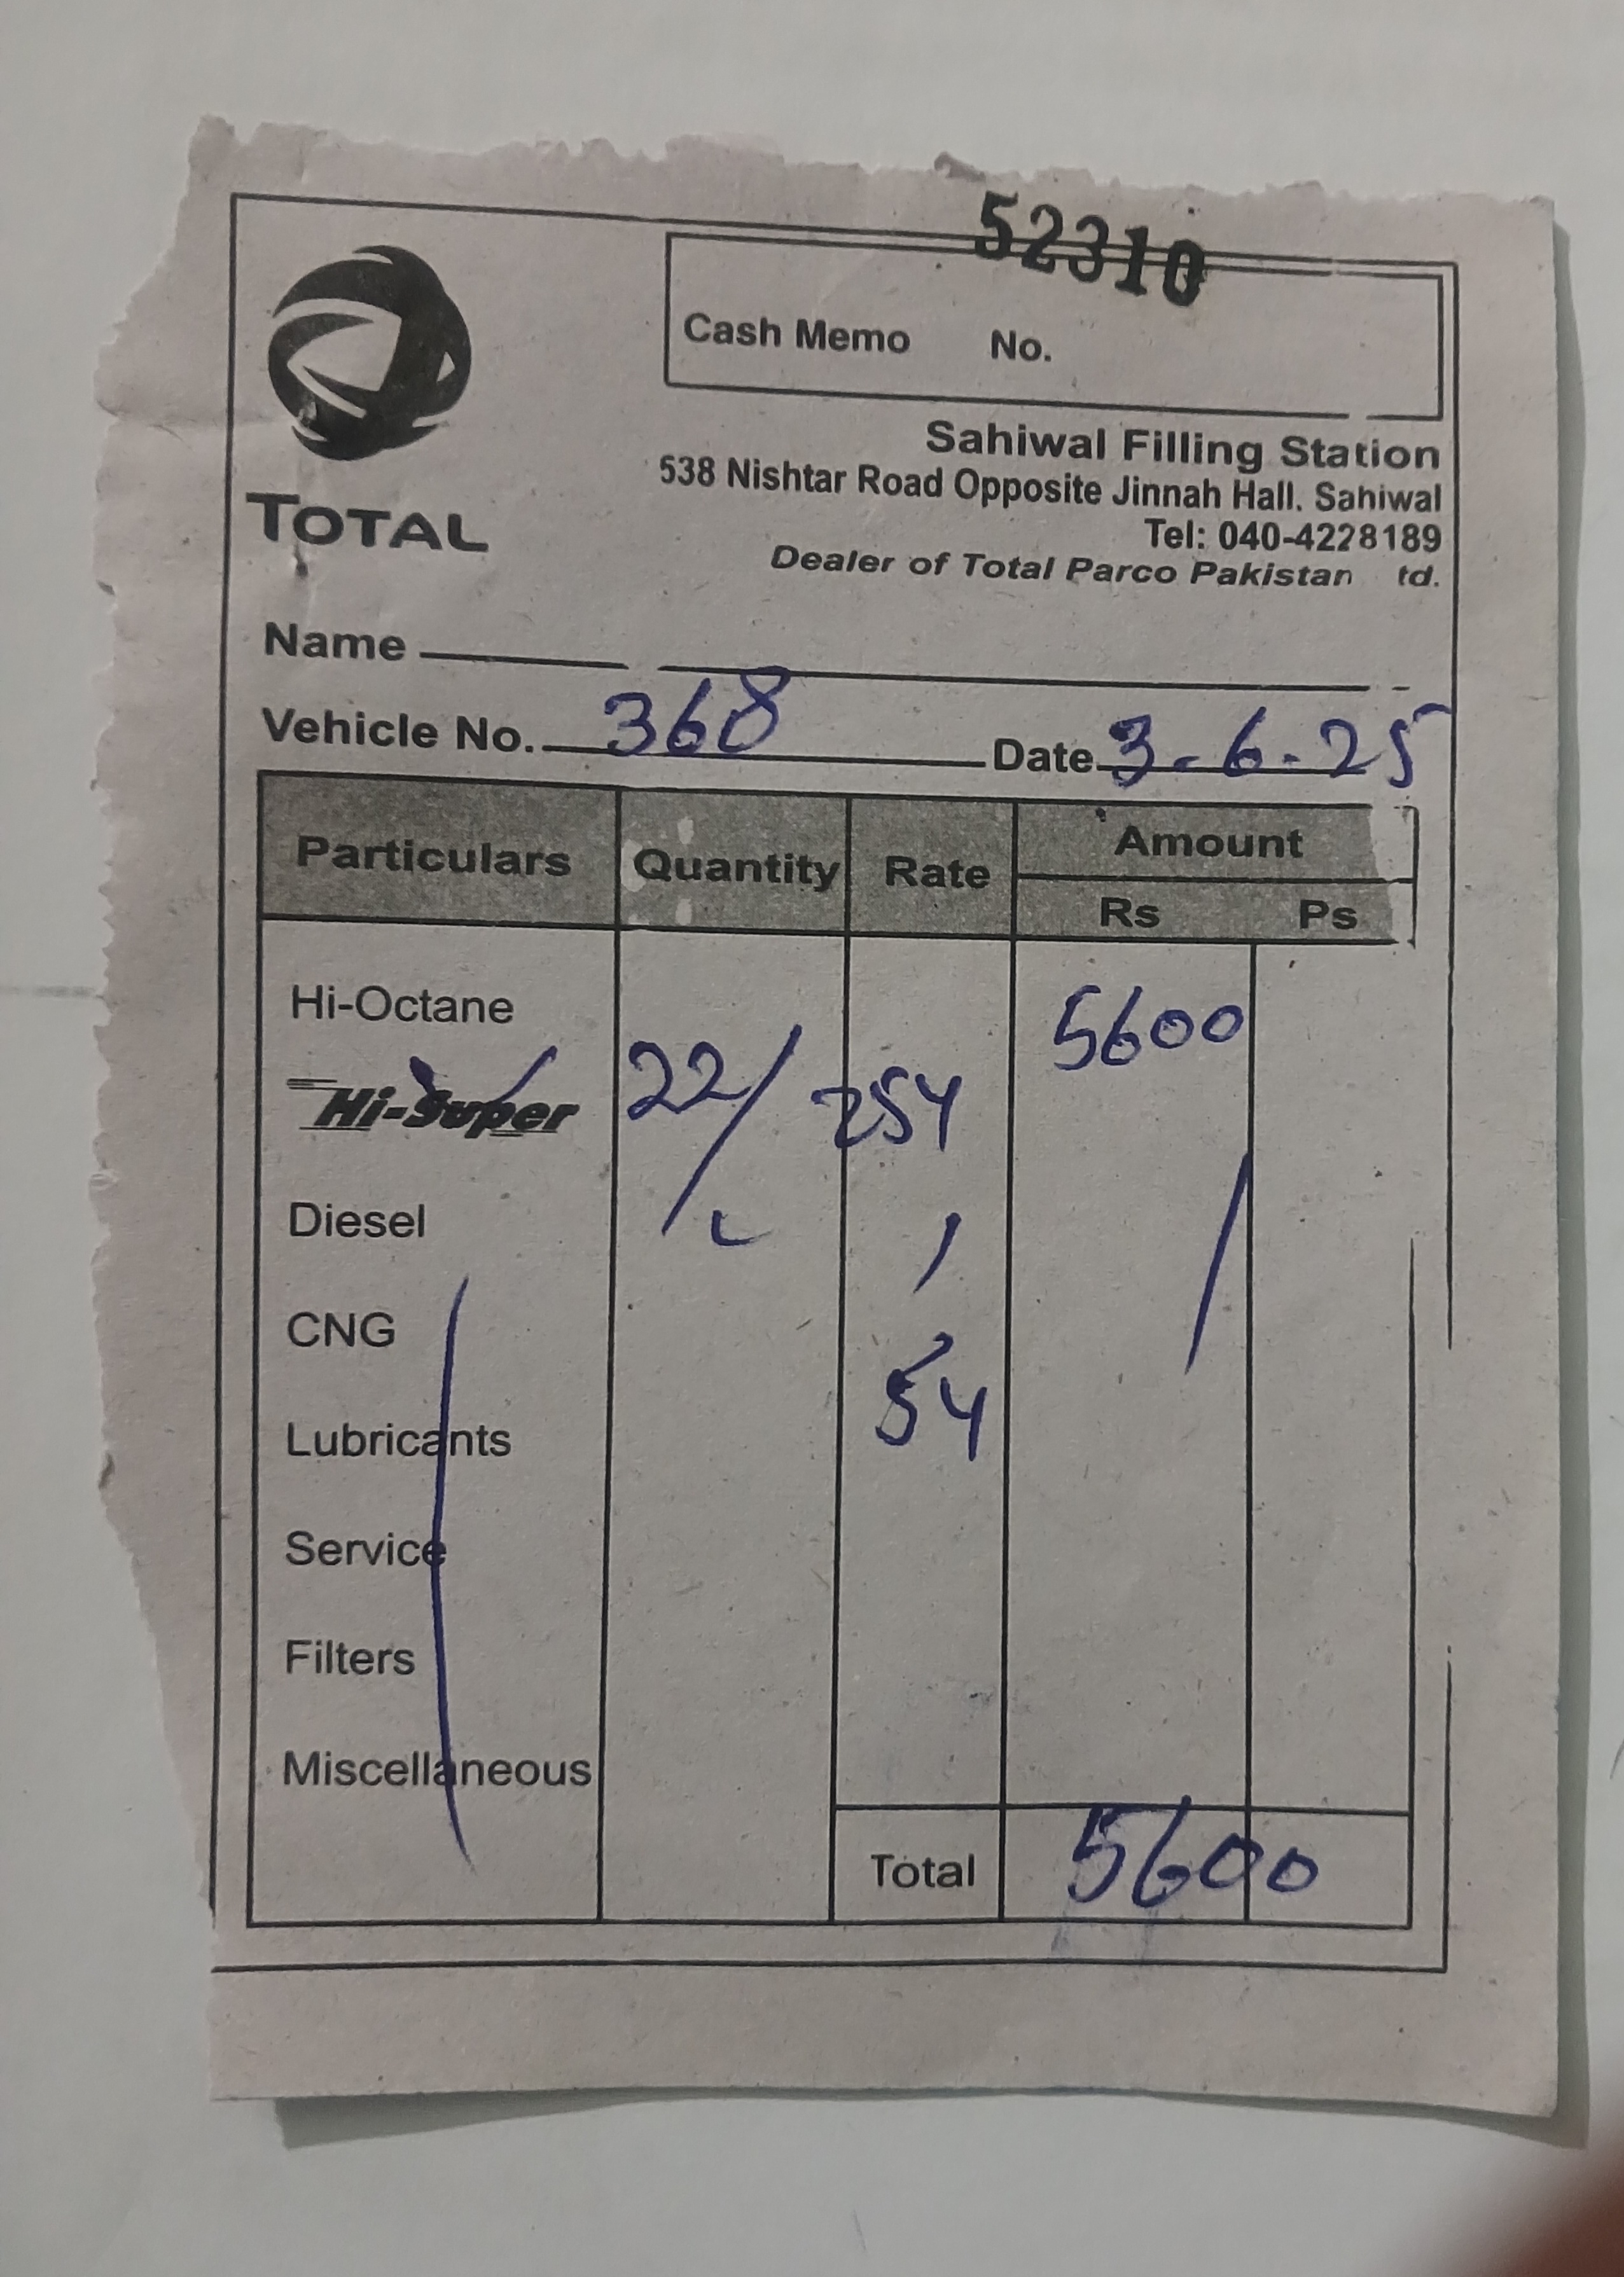 52310
Cash Memo No.
TOTAL
Sahiwal Filling Station
538 Nishtar Road Opposite Jinnah Hall. Sahiwal
Tel: 040-4228189
Dealer of Total Parco Pakistan td.
Name
Vehicle No. 368 Date 3-6-25
Particulars Quantity Rate Amount
Rs Ps
Hi-Octane 5600
Hi-Super 22/ 254
Diesel
CNG
Lubricants 54
Service
Filters
Miscellaneous
Total 5600